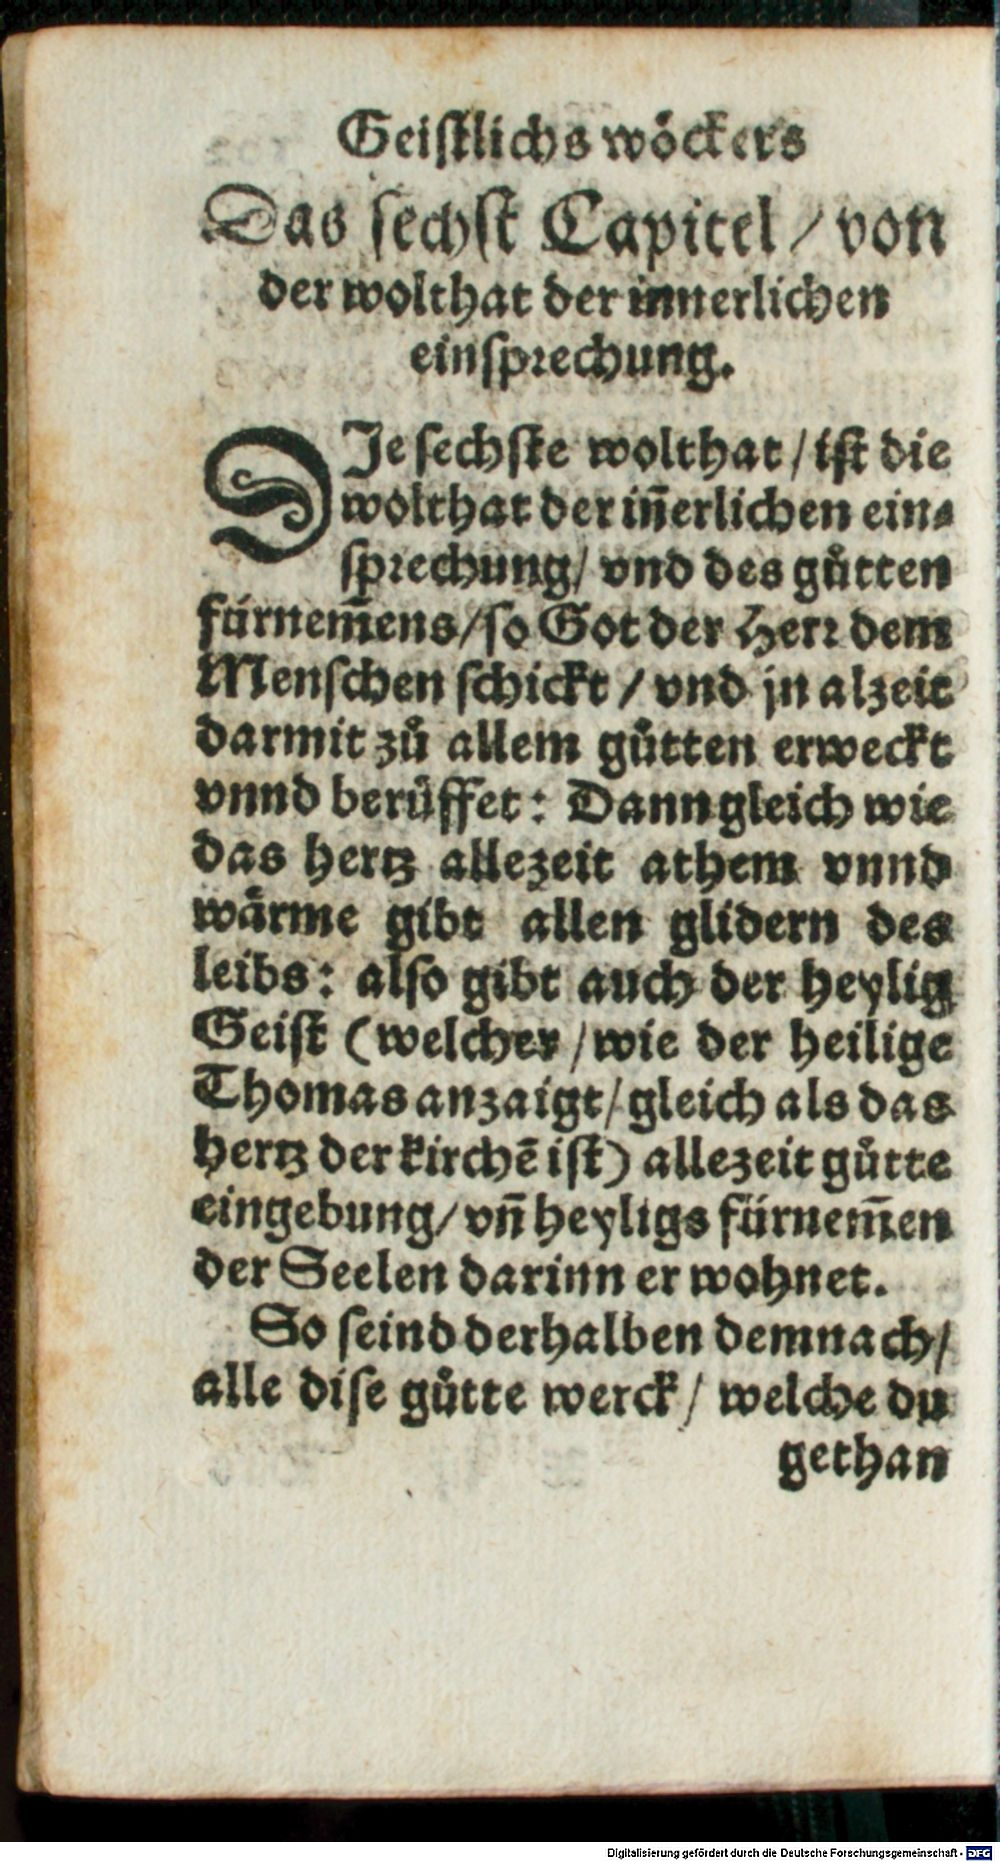 Geistlichs wöckers
Das sechst Capitel / von
der wolthat der innerlichen
einsprechung.
DIe sechste wolthat / ist die
wolthat der iñerlichen ein⸗
sprechung / vnd des gůtten
fürnem̃ens / so Got der Herr dem
Menschen schickt / vnd jn alzeit
darmit zů allem gůtten erweckt
vnnd berüffet: Dann gleich wie
das hertz allezeit athem vnnd
wärme gibt allen glidern des
leibs: also gibt auch der heylig
Geist (welcher / wie der heilige
Thomas anzaigt / gleich als das
hertz der kirchẽ ist) allezeit gůtte
eingebung / vñ heyligs fürnem̃en
der Seelen darinn er wohnet.
So seind derhalben demnach /
alle dise gůtte werck / welche du
gethan
Digitalisierung gefördert durch die Deutsche Forschungsgemeinschaft - DFG